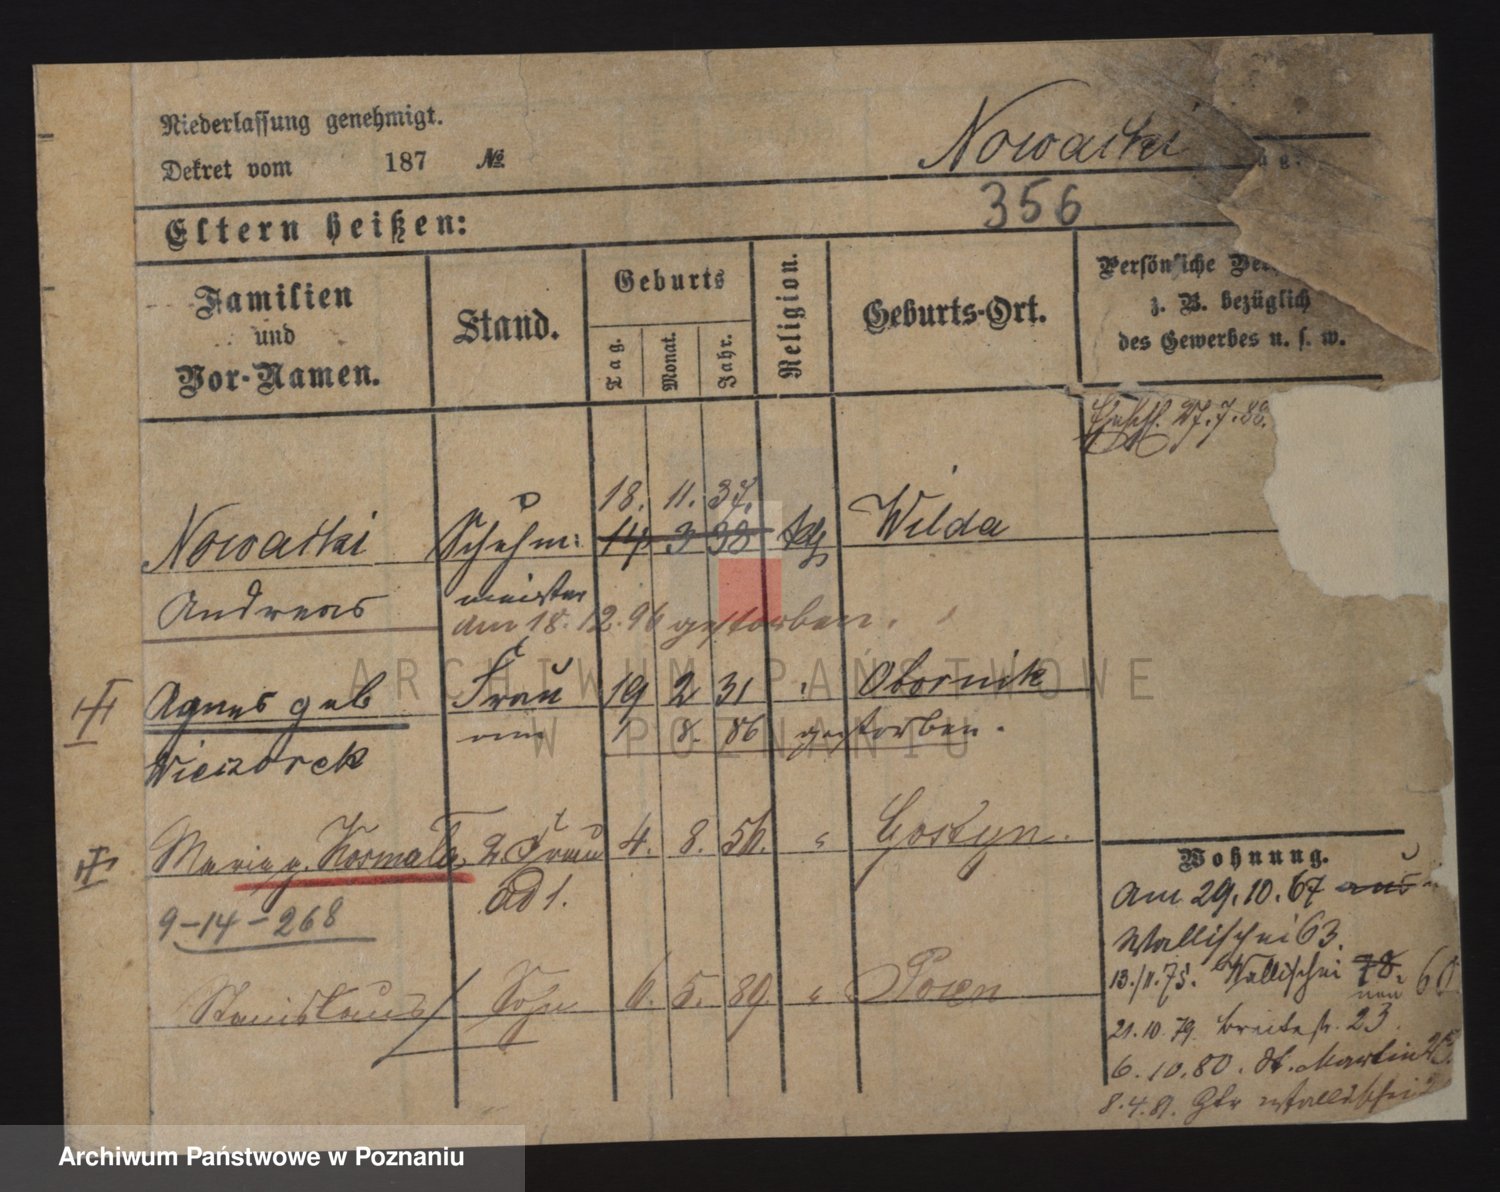 Niederlassung genehmigt.
Dekret vom 187 №
Nowacki
356
Eltern heißen:
Familien
und
Vor-Namen.
Stand.
Geburts
Tag.
Monat.
Jahr.
Religion.
Geburts-Ort.
Persönliche
z. B. bezüglich
des Gewerbes u. s. w.
27.7.88.
18. 11. 37.
Nowacki Schuhm: 14 3 38 kth Wilda
Andreas meister
am 18.12.96 gestorben.
Agnes geb Frau 19 2 31 " Obornik
1 8. 86 gestorben.
Wieczorek
Maria g. Kosmala 2 Frau 4. 8. 56. " Gostyn.
ad 1.
9-14-268
Stanislaus Sohn 6. 5. 89. " Posen
Wohnung.
Am 29.10.67 aus
Wallischei 63.
13./11.75. Wallischei 78. 60
neu
21.10.79. Breitestr. 23
6.10.80. St. Martin 25.
8.4.81. Wallischei
ARCHIWUM PAŃSTWOWE
W POZNANIU
Archiwum Państwowe w Poznaniu